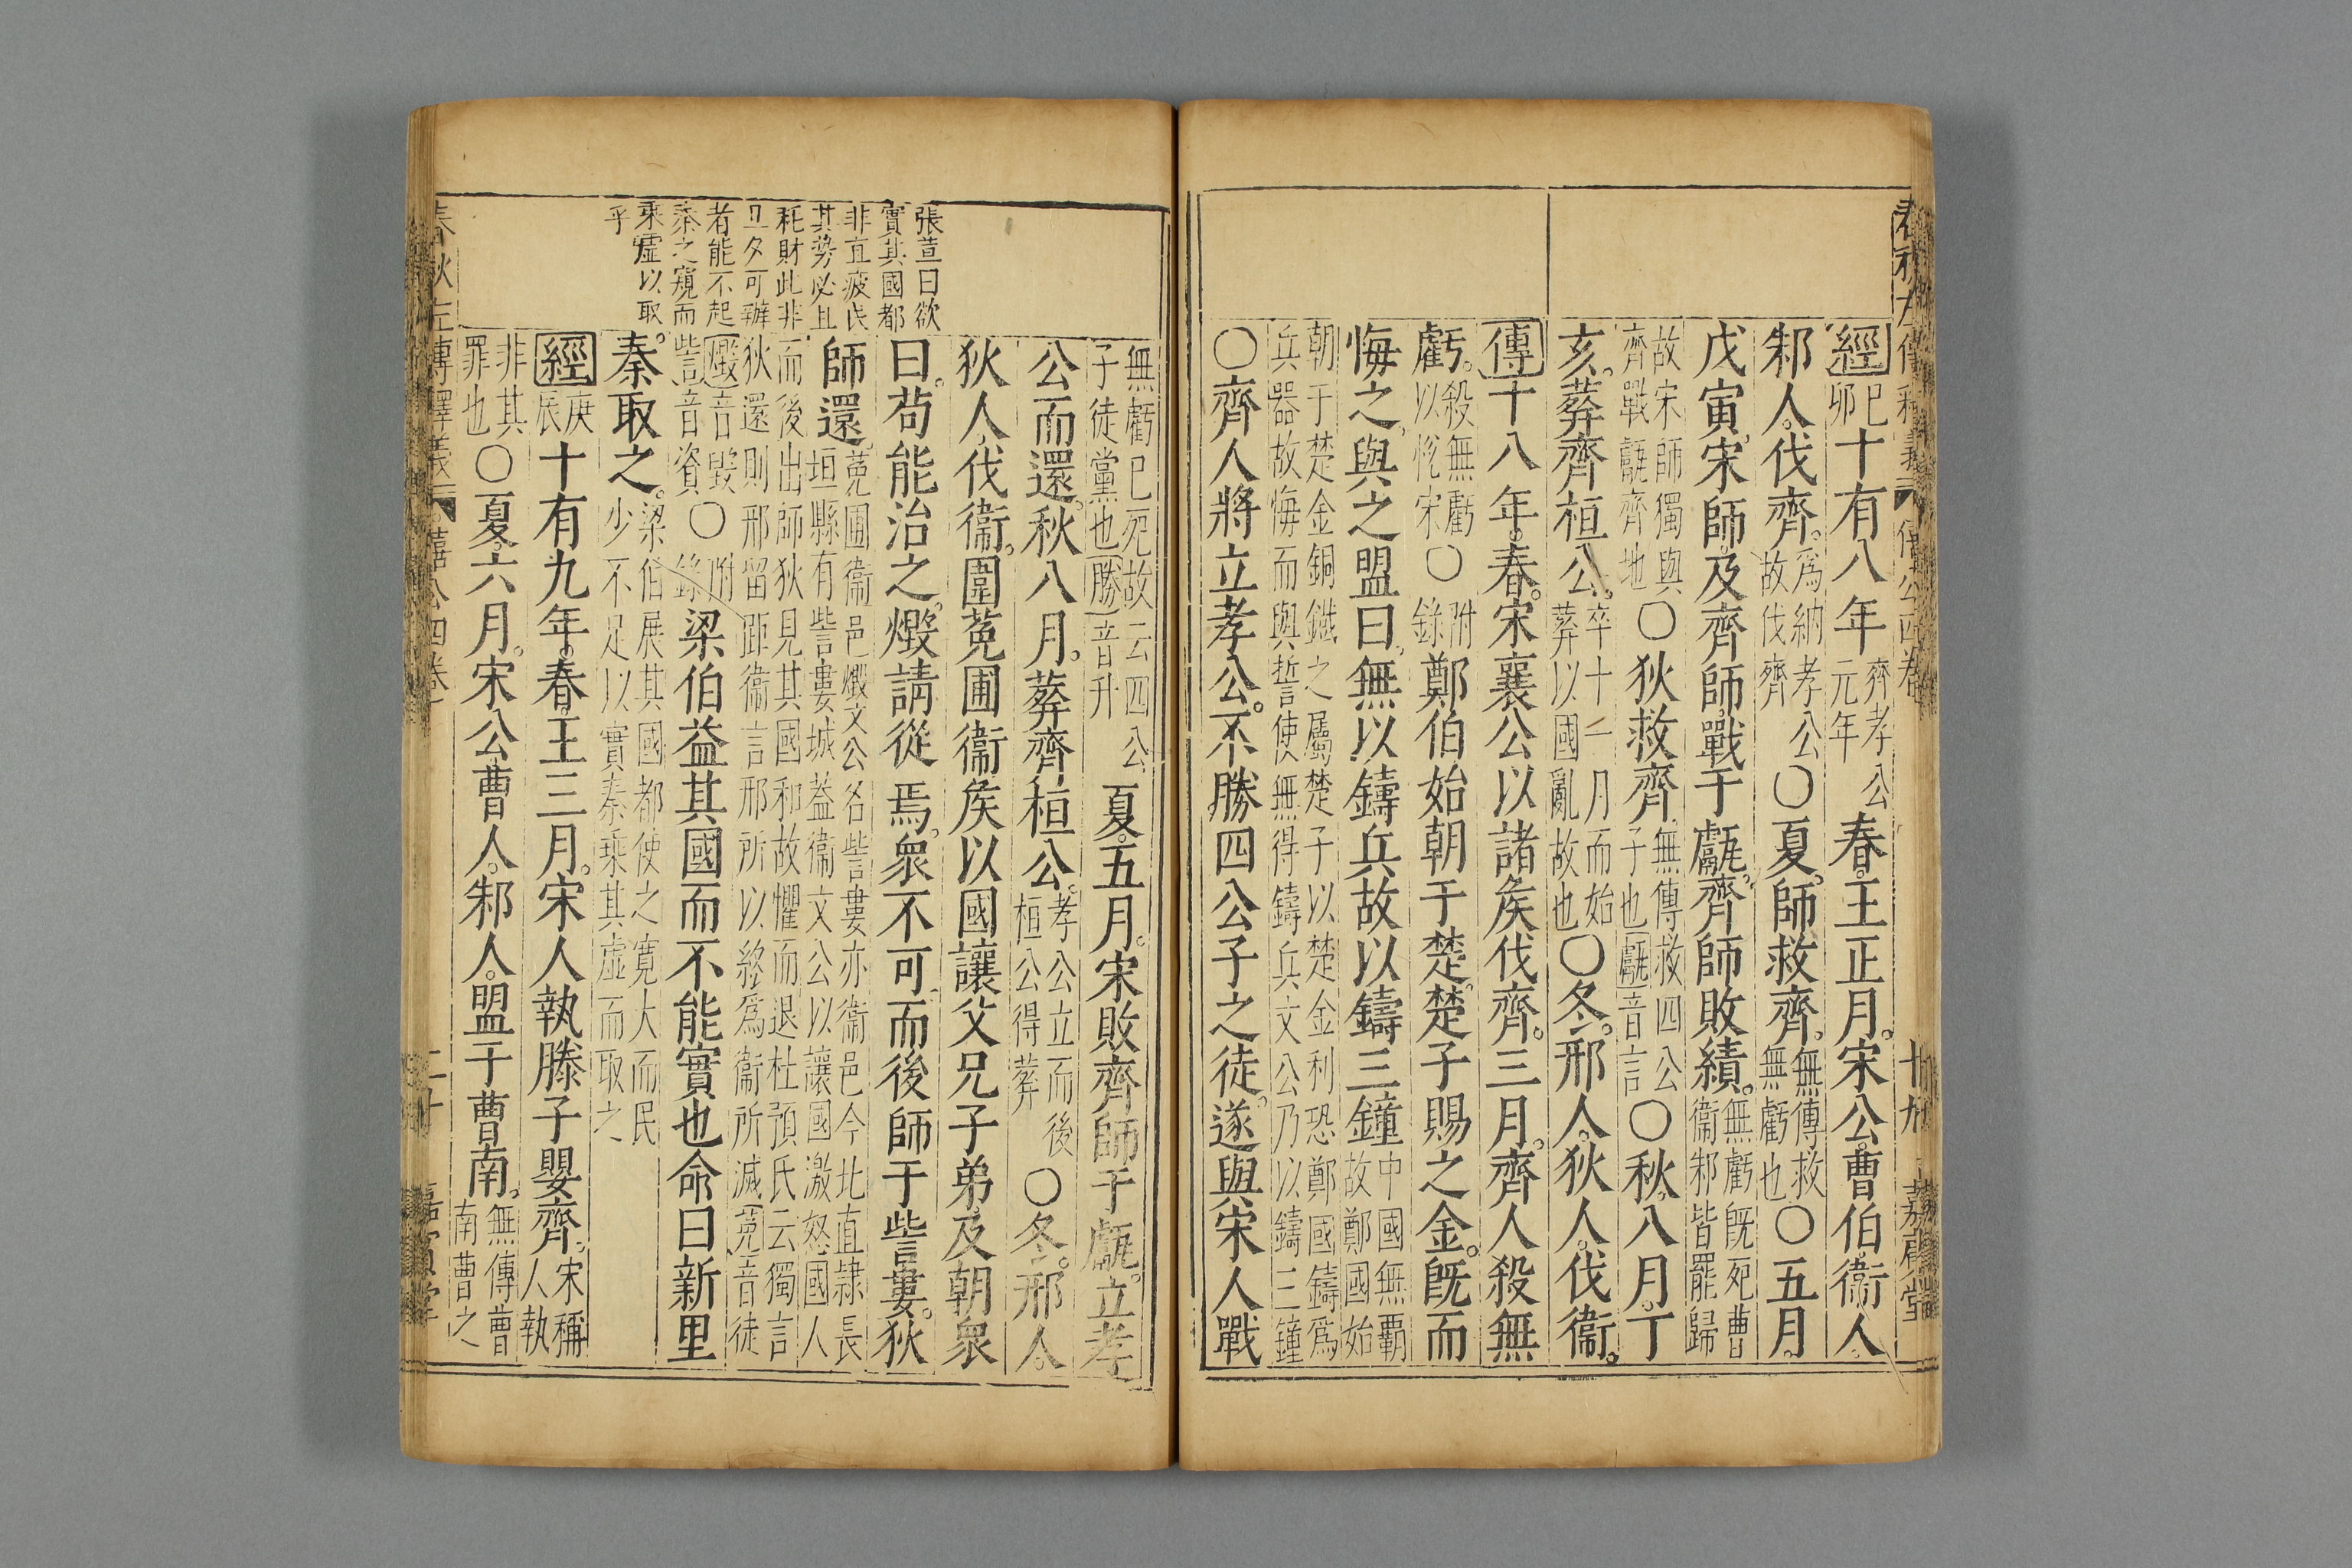 經己卯十有八年齊孝公元年春王正月宋公曹伯衞人
邾人伐齊爲納孝公故伐齊○夏師救齊無傳救無虧也○五月
戊寅宋師及齊師戰于甗齊師敗績無虧旣死曹衞邾皆罷歸
故宋師獨與齊戰甗齊地○狄救齊無傳救四公子也甗音言○秋八月丁
亥葬齊桓公卒十二月而始葬以國亂故也○冬邢人狄人伐衞
傳十八年春宋襄公以諸矦伐齊三月齊人殺無
虧殺無虧以悅宋○附錄鄭伯始朝于楚楚子賜之金旣而
悔之與之盟曰無以鑄兵故以鑄三鐘中國無霸故鄭國始
朝于楚金銅鐵之屬楚子以楚金利恐鄭國鑄爲兵器故悔而與誓使無得鑄兵文公乃以鑄三鐘
○齊人將立孝公不勝四公子之徒遂與宋人戰
無虧已死故云四公子徒黨也勝音升夏五月宋敗齊師于甗立孝
公而還秋八月葬齊桓公孝公立而後桓公得葬○冬邢人
狄人伐衞圍菟圃衞矦以國讓父兄子弟及朝衆
曰苟能治之燬請從焉衆不可而後師于訾婁狄
師還菟圃衞邑燬文公名訾婁亦衞邑今北直隷長垣縣有訾婁城葢衞文公以讓國激怒國人
而後出師狄見其國和故懼而退杜預氏云獨言狄還則邢留距衞言邢所以終爲衞所滅菟音徒
燬音毀訾音資○附錄梁伯益其國而不能實也命曰新里
秦取之梁伯展其國都使之寬大而民少不足以實秦乘其虛而取之
經庚辰十有九年春王三月宋人執滕子嬰齊宋稱人執
非其罪也○夏六月宋公曹人邾人盟于曹南無傳曹南曹之
張萱曰欲
實其國都
非直疲民
其勢必且
耗財此非
旦夕可辦
者能不起
秦之窺而
乘虛以取
乎
春秋左傳釋義
僖公四卷
十九
二十